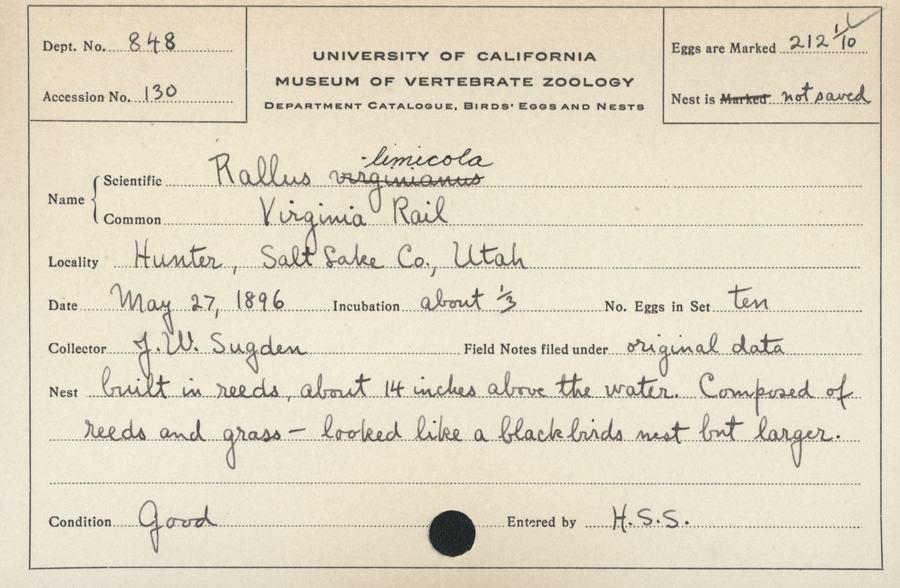 Dept. No. 848
Accession No. 130
UNIVERSITY OF CALIFORNIA
MUSEUM OF VERTEBRATE ZOOLOGY
DEPARTMENT CATALOGUE, BIRDS' EGGS AND NESTS
Eggs are Marked 212 1/10
Nest is Marked not saved
limicola
Scientific Rallus virginianus
Name
Common Virginia Rail
Locality Hunter, Salt Lake Co., Utah
Date May 27, 1896 Incubation about 1/3 No. Eggs in Set ten
Collector J. W. Sugden Field Notes filed under original data
Nest built in reeds, about 14 inches above the water. Composed of
reeds and grass — looked like a blackbirds nest but larger.
Condition Good Entered by H.S.S.